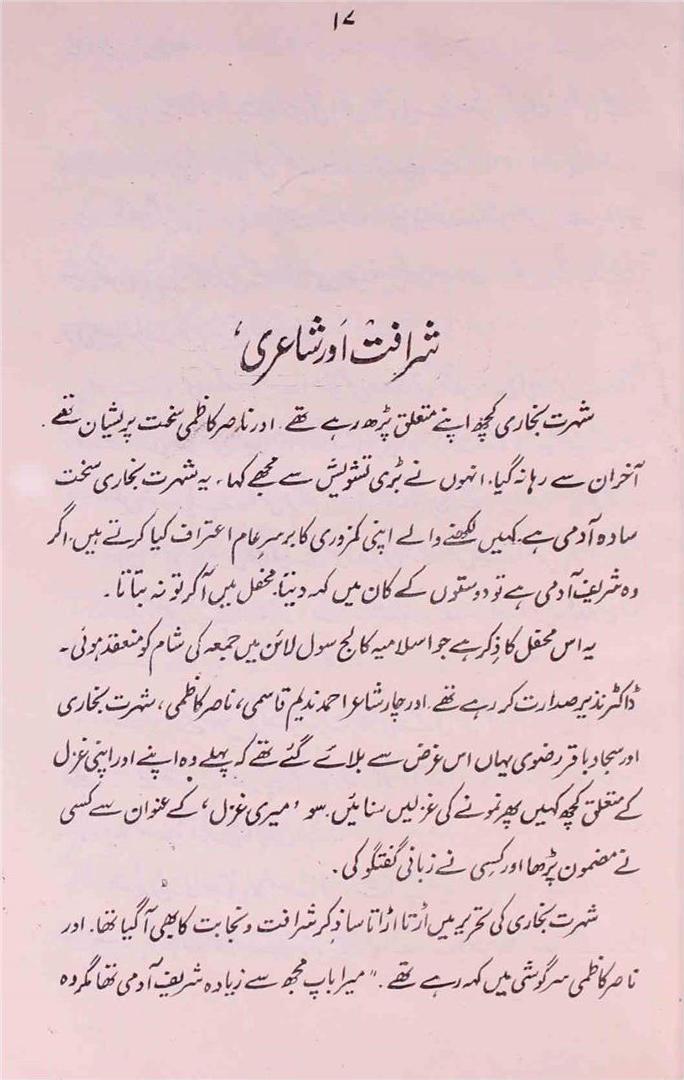 ۱۷
شرافت اور شاعری،
شہرت بخاری کچھ اپنے متعلق پڑھ رہے تھے۔ اور ناصر کاظمی سخت پریشان تھے۔
آخر ان سے رہا نہ گیا۔ انہوں نے بڑی تشویش سے مجھے کہا۔ یہ شہرت بخاری سخت
سادہ آدمی ہے۔ کہیں لکھنے والے اپنی کمزوری کا برسرِ عام اعتراف کیا کرتے ہیں۔ اگر
وہ شریف آدمی ہے تو دوستوں کے کان میں کہہ دیتا۔ محفل میں آ کر تو نہ بتاتا۔
یہ اس محفل کا ذکر ہے جو اسلامیہ کالج سول لائن میں جمعہ کی شام کو منعقد ہوئی۔
ڈاکٹر نذیر صدارت کر رہے تھے۔ اور چار شاعر احمد ندیم قاسمی، ناصر کاظمی، شہرت بخاری
اور سجاد باقر رضوی یہاں اس غرض سے بلائے گئے تھے کہ پہلے وہ اپنے اور اپنی غزل
کے متعلق کچھ کہیں پھر نمونے کی غزلیں سنائیں۔ سو ’میری غزل‘ کے عنوان سے کسی
نے مضمون پڑھا اور کسی نے زبانی گفتگو کی۔
شہرت بخاری کی تحریر میں اڑتا اڑاتا سا ذکر شرافت و نجابت کا بھی آ گیا تھا۔ اور
ناصر کاظمی سرگوشی میں کہہ رہے تھے۔ "میرا باپ مجھ سے زیادہ شریف آدمی تھا مگر وہ